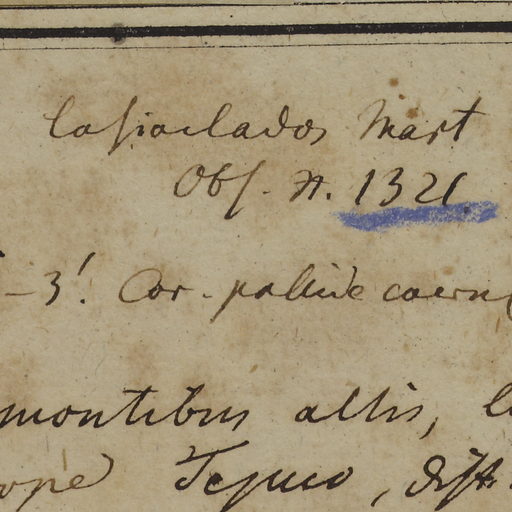 Lasiaclados Mart
Obs. n. 1321.
- 3'. Cor. pallide caeru
montibus altis,
prope Tejuco, distr